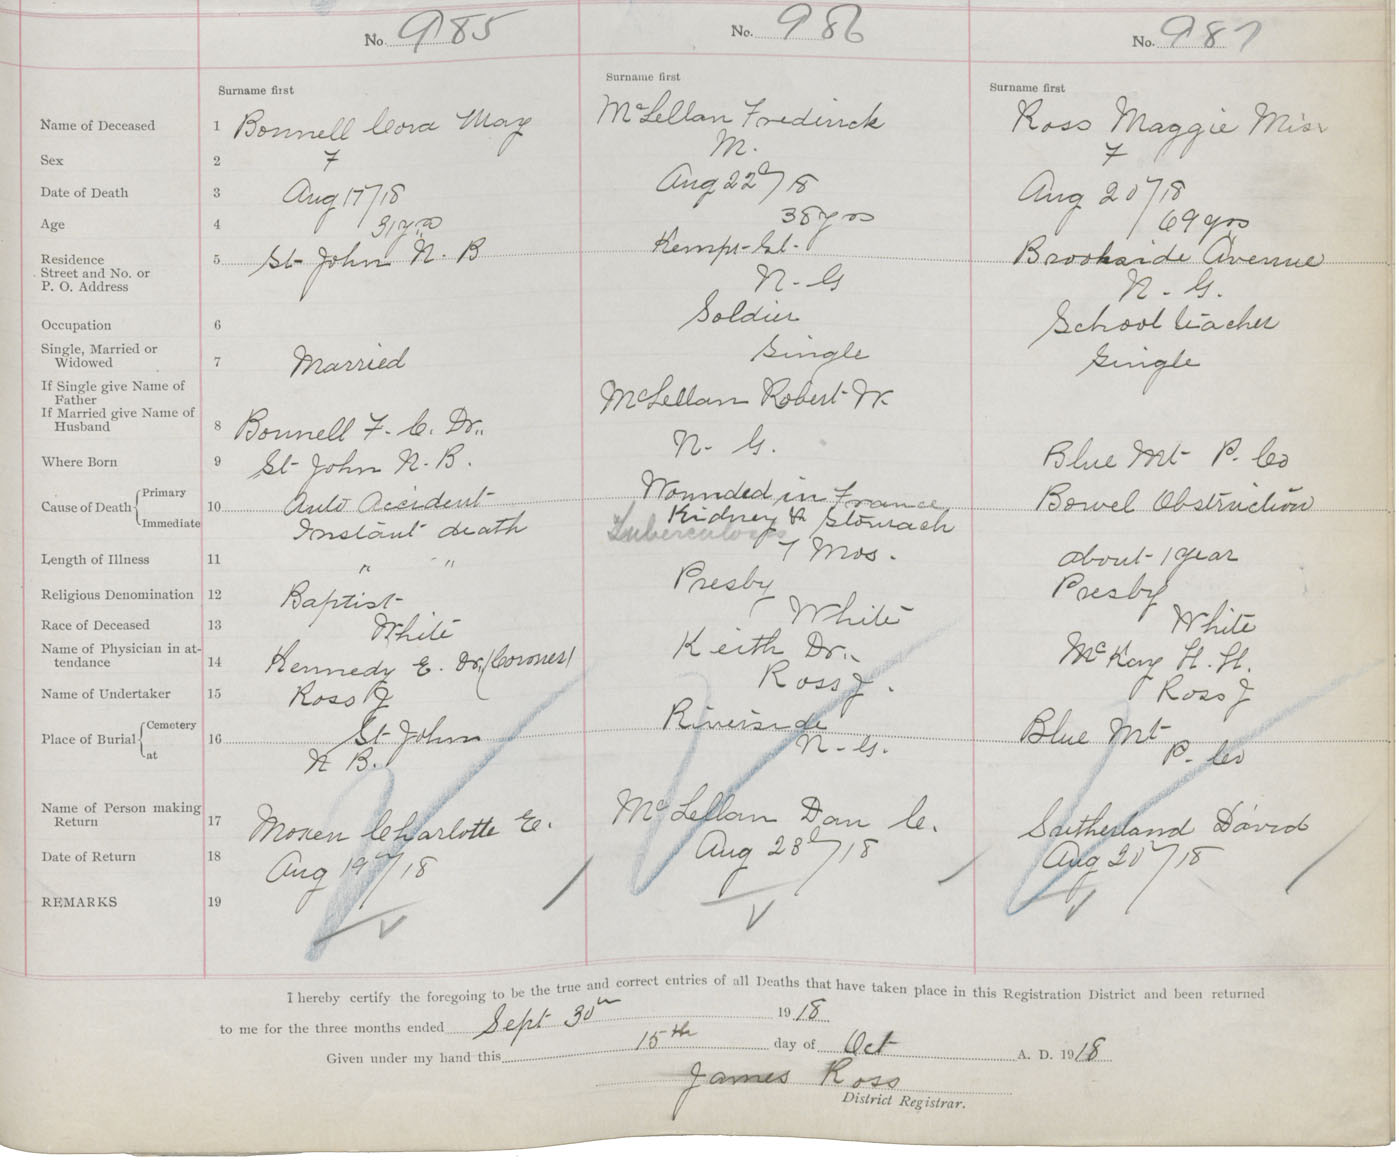 No. 985 No. 986 No. 987
Surname first Surname first Surname first
Name of Deceased 1 Bonnell Cora May McLellan Fredirick Ross Maggie Miss
Sex 2 F M. F
Date of Death 3 Aug 17/18 Aug 22d/18 Aug 20/18
Age 4 31 yrs 38 yrs 69 yrs
Residence 5 St John N. B Kemps St. Brookside Avenue
Street and No. or
P. O. Address N - G N - G.
Occupation 6 Soldier School teacher
Single, Married or
Widowed 7 Married Single Single
If Single give Name of
Father McLellan Robert W.
If Married give Name of
Husband 8 Bonnell F. C. Dr.
Where Born 9 St John N. B. N - G. Blue Mt P. Co
Cause of Death Primary 10 Auto Accident Wounded in France Bowel Obstruction
Immediate Instant death Kidney & Stomach
Tuberculosis
Length of Illness 11 " " 7 Mos. about 1 year
Religious Denomination 12 Baptist Presby Presby
Race of Deceased 13 White White White
Name of Physician in at-
tendance 14 Kennedy E. Dr. (Coroner) Keith Dr. McKay H. H.
Name of Undertaker 15 Ross J Ross J. Ross J
Place of Burial Cemetery 16 St John Riverside Blue Mt
at N B. N - G. P. Co
Name of Person making
Return 17 Charlotte E. McLellan Dan C. Sutherland David
Date of Return 18 Aug 19th/18 Aug 23d/18 Aug 20/18
REMARKS 19
I hereby certify the foregoing to be the true and correct entries of all Deaths that have taken place in this Registration District and been returned
to me for the three months ended Sept 30th 1918
Given under my hand this 15th day of Oct A. D. 1918
James Ross
District Registrar.